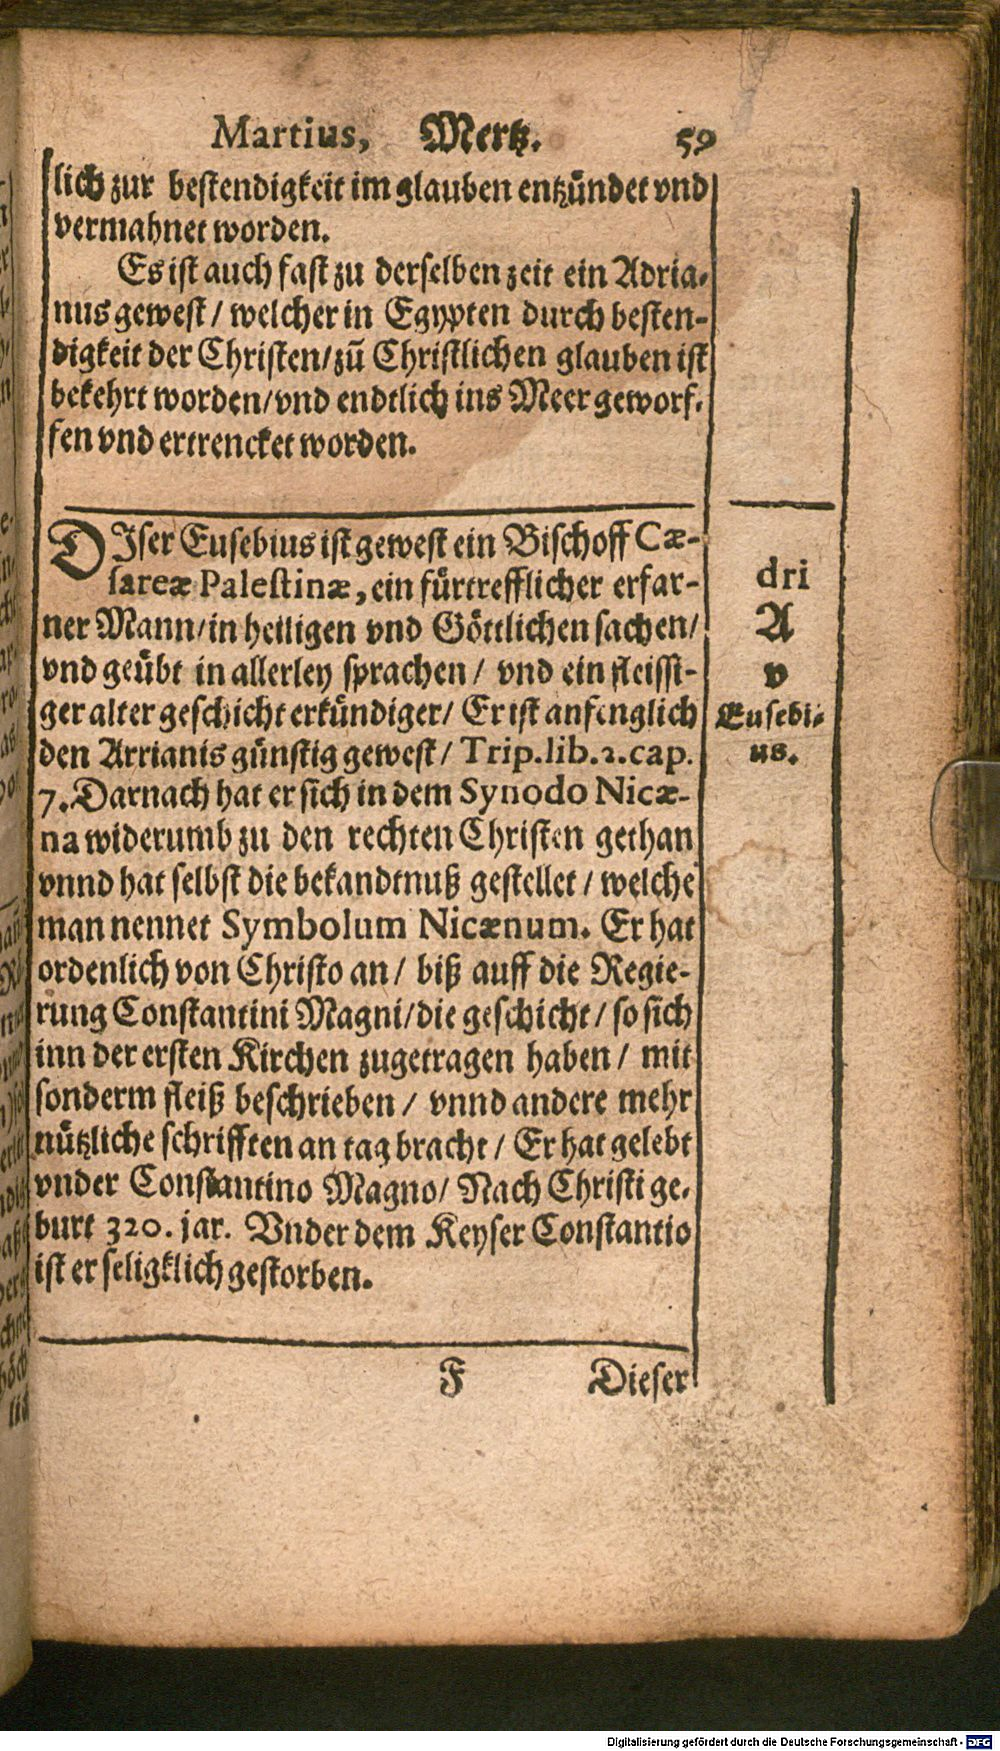 Martius, Mertz. 59
lich zur bestendigkeit im glauben entzündet vnd
vermahnet worden.
Es ist auch fast zu derselben zeit ein Adria-
nus gewest / welcher in Egypten durch besten-
digkeit der Christen/zū Christlichen glauben ist
bekehrt worden/vnd endtlich ins Meer geworf-
fen vnd ertrencket worden.
DIser Eusebius ist gewest ein Bischoff Cæ-
sareæ Palestinæ, ein fürtrefflicher erfar-
ner Mann/in heiligen vnd Göttlichen sachen/
vnd geübt in allerley sprachen / vnd ein fleissi-
ger alter geschicht erkündiger/ Er ist anfenglich
den Arrianis günstig gewest/ Trip.lib.2.cap.
7. Darnach hat er sich in dem Synodo Nicæ-
na widerumb zu den rechten Christen gethan
vnnd hat selbst die bekandtnuß gestellet / welche
man nennet Symbolum Nicænum. Er hat
ordenlich von Christo an / biß auff die Regie-
rung Constantini Magni/die geschicht / so sich
inn der ersten Kirchen zugetragen haben / mit
sonderm fleiß beschrieben / vnnd andere mehr
nützliche schrifften an tag bracht / Er hat gelebt
vnder Constantino Magno/ Nach Christi ge-
burt 320. jar. Vnder dem Keyser Constantio
ist er seligklich gestorben.
dri
A
v
Eusebi-
us.
F Dieser
Digitalisierung gefördert durch die Deutsche Forschungsgemeinschaft - DFG